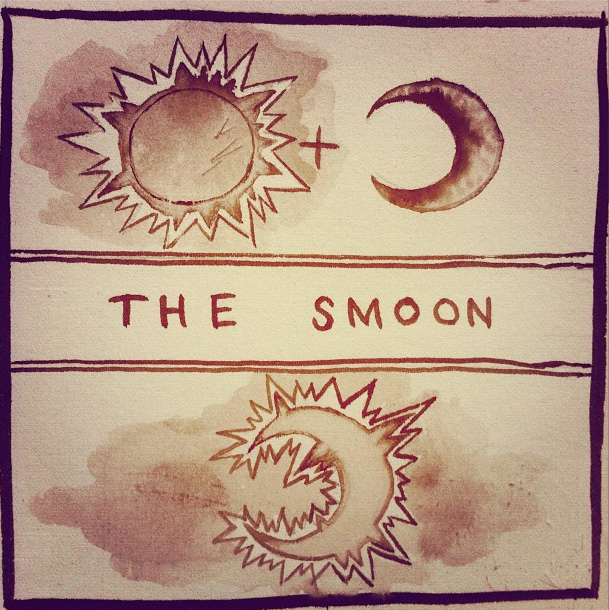 +
THE SMOON